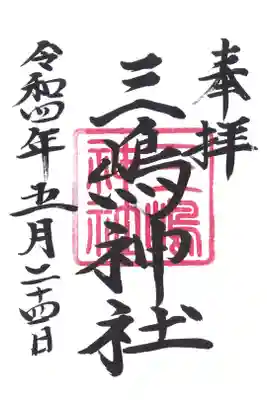 奉拝
三嶋神社
三嶋神社
令和四年五月二十四日